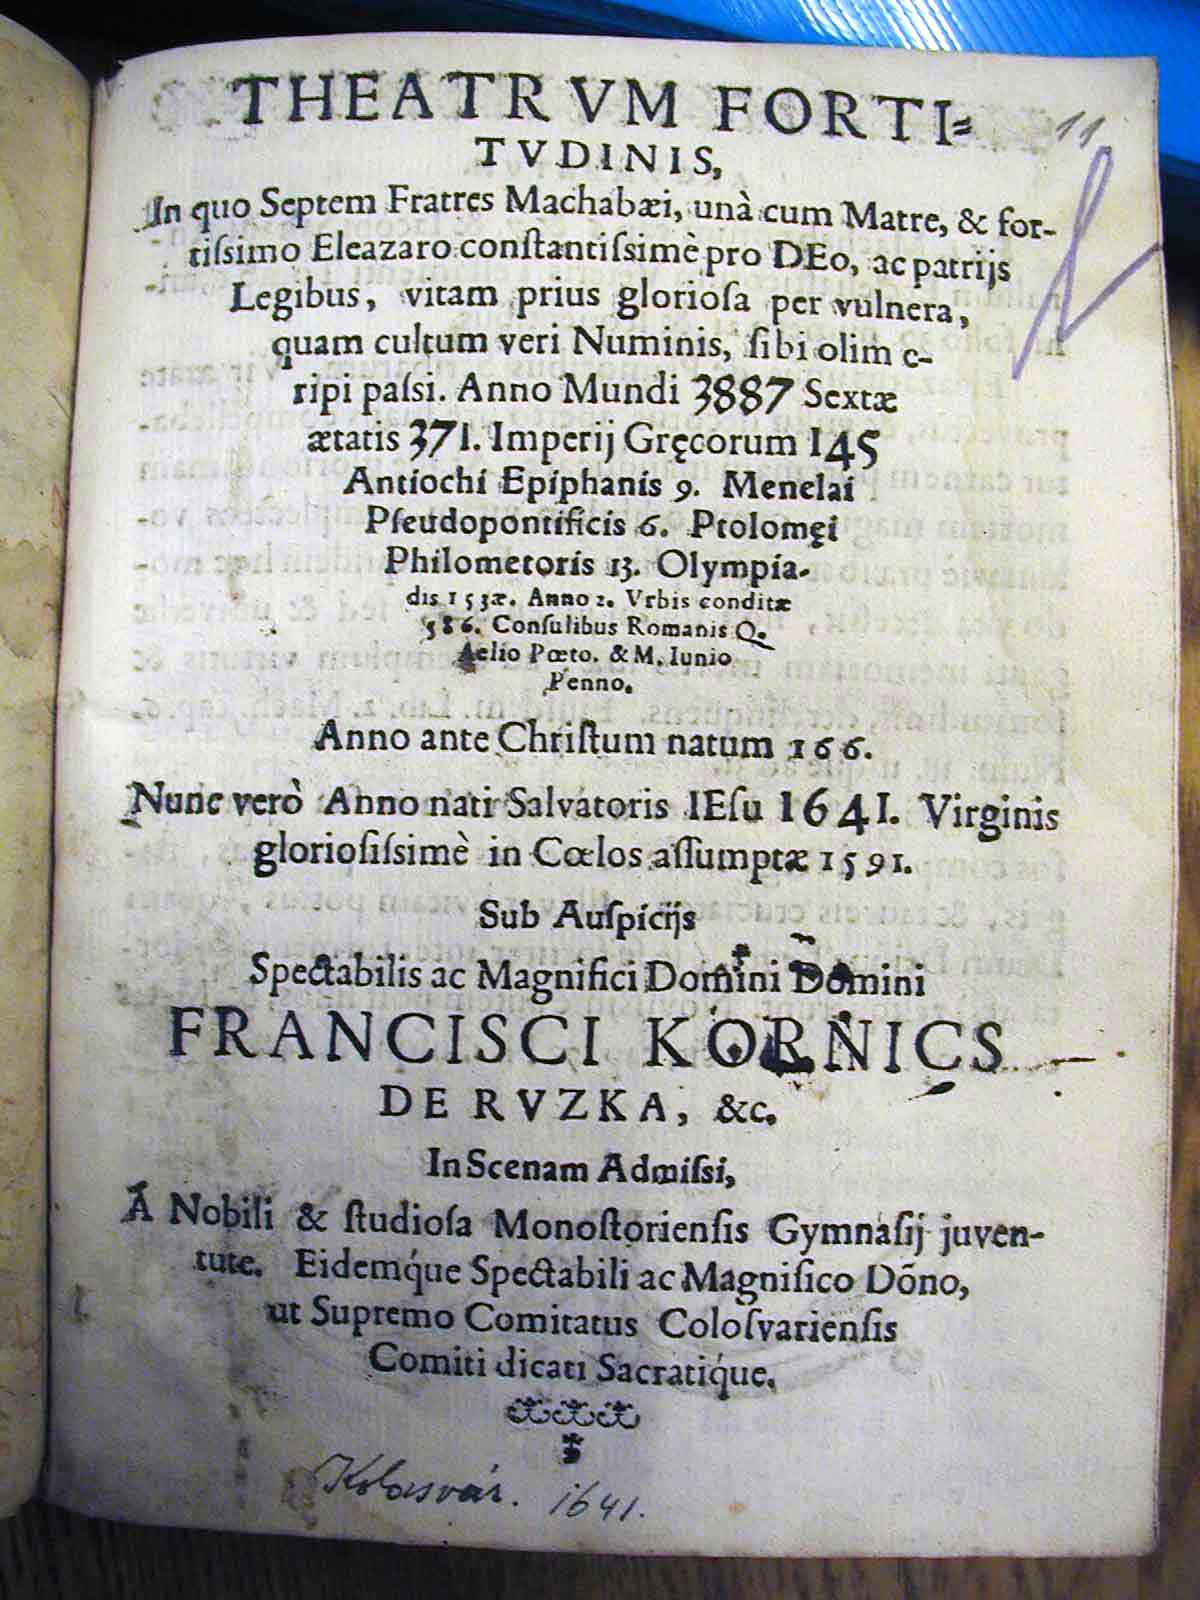 THEATRVM FORTI-
TVDINIS,
In quo Septem Fratres Machabæi, unà cum Matre, & for-
tiſsimo Eleazaro conſtantiſsimè pro DEo, ac patrijs
Legibus, vitam prius glorioſa per vulnera,
quam cultum veri Numinis, ſibi olim e-
ripi paſsi. Anno Mundi 3887 Sextæ
ætatis 371. Imperij Gręcorum 145
Antiochi Epiphanis 9. Menelai
Pſeudopontificis 6. Ptolomęi
Philometoris 13. Olympia-
dis 153æ. Anno 2. Vrbis conditæ
586. Conſulibus Romanis Q.
Aelio Pœto. & M. Iunio
Penno.
Anno ante Chriſtum natum 166.
Nunc verò Anno nati Salvatoris IEſu 1641. Virginis
glorioſiſsimè in Cœlos aſſumptæ 1591.
Sub Auſpicijs
Spectabilis ac Magnifici Domini Domini
FRANCISCI KORNICS
DE RVZKA, &c.
In Scenam Admiſsi,
A Nobili & ſtudioſa Monoſtorienſis Gymnaſij juven-
tute. Eidemq́ue Spectabili ac Magnifico Dõno,
ut Supremo Comitatus Coloſvarienſis
Comiti dicati Sacratiq́ue.
Kolosvár. 1641.
11